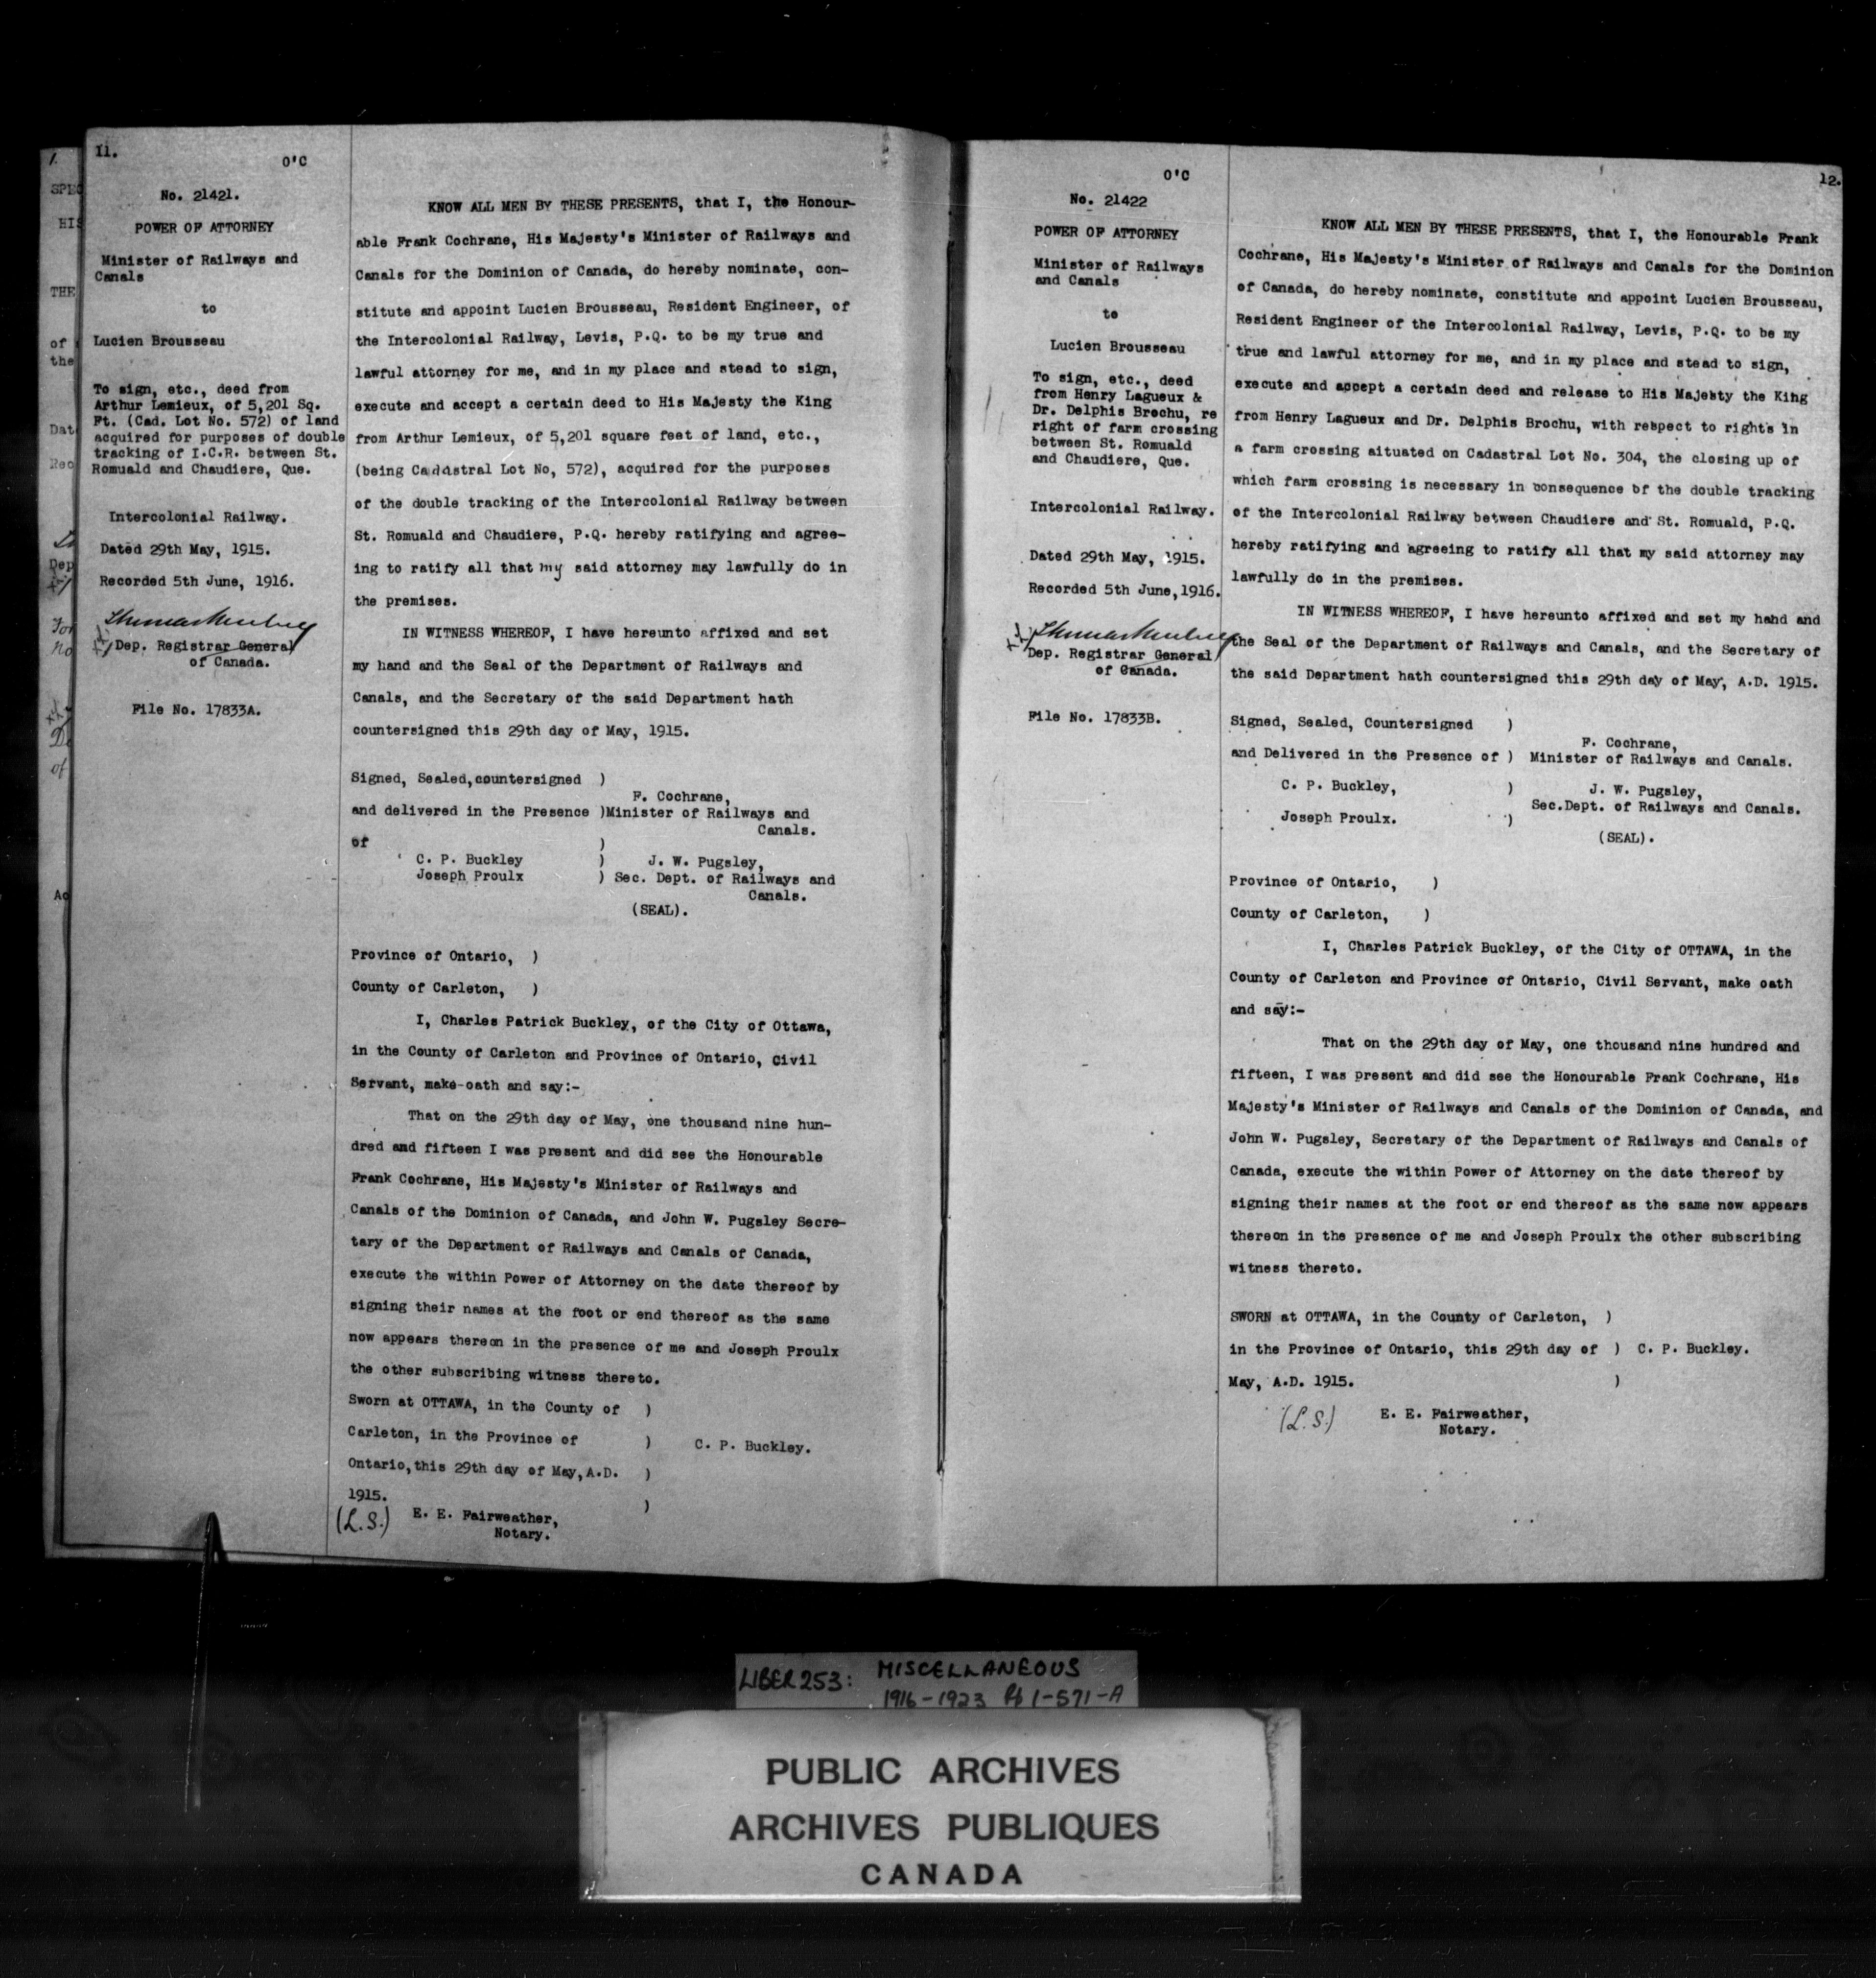 11.
O'C
No. 21421.
POWER OF ATTORNEY
Minister of Railways and
Canals
to
Lucien Brousseau
To sign, etc., deed from
Arthur Lemieux, of 5,201 Sq.
Ft. (Cad. Lot No. 572) of land
acquired for purposes of double
tracking of I.C.R. between St.
Romuald and Chaudiere, Que.
Intercolonial Railway.
Dated 29th May, 1915.
Recorded 5th June, 1916.
Dep. Registrar General
of Canada.
File No. 17833A.
KNOW ALL MEN BY THESE PRESENTS, that I, the Honour-
able Frank Cochrane, His Majesty's Minister of Railways and
Canals for the Dominion of Canada, do hereby nominate, con-
stitute and appoint Lucien Brousseau, Resident Engineer, of
the Intercolonial Railway, Levis, P.Q. to be my true and
lawful attorney for me, and in my place and stead to sign,
execute and accept a certain deed to His Majesty the King
from Arthur Lemieux, of 5,201 square feet of land, etc.,
(being Cadastral Lot No, 572), acquired for the purposes
of the double tracking of the Intercolonial Railway between
St. Romuald and Chaudiere, P.Q. hereby ratifying and agree-
ing to ratify all that my said attorney may lawfully do in
the premises.
IN WITNESS WHEREOF, I have hereunto affixed and set
my hand and the Seal of the Department of Railways and
Canals, and the Secretary of the said Department hath
countersigned this 29th day of May, 1915.
Signed, Sealed, countersigned )
F. Cochrane,
and delivered in the Presence )Minister of Railways and
Canals.
of )
C. P. Buckley ) J. W. Pugsley,
Joseph Proulx ) Sec. Dept. of Railways and
Canals.
(SEAL).
Province of Ontario, )
County of Carleton, )
I, Charles Patrick Buckley, of the City of Ottawa,
in the County of Carleton and Province of Ontario, Civil
Servant, make-oath and say:-
That on the 29th day of May, one thousand nine hun-
dred and fifteen I was present and did see the Honourable
Frank Cochrane, His Majesty's Minister of Railways and
Canals of the Dominion of Canada, and John W. Pugsley Secre-
tary of the Department of Railways and Canals of Canada,
execute the within Power of Attorney on the date thereof by
signing their names at the foot or end thereof as the same
now appears thereon in the presence of me and Joseph Proulx
the other subscribing witness thereto.
Sworn at OTTAWA, in the County of )
Carleton, in the Province of ) C. P. Buckley.
Ontario, this 29th day of May, A.D. )
1915. )
(L.S.) E. E. Fairweather,
Notary.
12.
O'C
No. 21422
POWER OF ATTORNEY
Minister of Railways
and Canals
to
Lucien Brousseau
To sign, etc., deed
from Henry Lagueux &
Dr. Delphis Brochu, re
right of farm crossing
between St. Romuald
and Chaudiere, Que.
Intercolonial Railway.
Dated 29th May, 1915.
Recorded 5th June, 1916.
Dep. Registrar General
of Canada.
File No. 17833B.
KNOW ALL MEN BY THESE PRESENTS, that I, the Honourable Frank
Cochrane, His Majesty's Minister of Railways and Canals for the Dominion
of Canada, do hereby nominate, constitute and appoint Lucien Brousseau,
Resident Engineer of the Intercolonial Railway, Levis, P.Q. to be my
true and lawful attorney for me, and in my place and stead to sign,
execute and accept a certain deed and release to His Majesty the King
from Henry Lagueux and Dr. Delphis Brochu, with respect to rights in
a farm crossing aituated on Cadastral Lot No. 304, the closing up of
which farm crossing is necessary in consequence of the double tracking
of the Intercolonial Railway between Chaudiere and St. Romuald, P.Q.
hereby ratifying and agreeing to ratify all that my said attorney may
lawfully do in the premises.
IN WITNESS WHEREOF, I have hereunto affixed and set my hand and
the Seal of the Department of Railways and Canals, and the Secretary of
the said Department hath countersigned this 29th day of May, A.D. 1915.
Signed, Sealed, Countersigned )
F. Cochrane,
and Delivered in the Presence of ) Minister of Railways and Canals.
C. P. Buckley, ) J. W. Pugsley,
Sec.Dept. of Railways and Canals.
Joseph Proulx. )
(SEAL).
Province of Ontario, )
County of Carleton, )
I, Charles Patrick Buckley, of the City of OTTAWA, in the
County of Carleton and Province of Ontario, Civil Servant, make oath
and say:-
That on the 29th day of May, one thousand nine hundred and
fifteen, I was present and did see the Honourable Frank Cochrane, His
Majesty's Minister of Railways and Canals of the Dominion of Canada, and
John W. Pugsley, Secretary of the Department of Railways and Canals of
Canada, execute the within Power of Attorney on the date thereof by
signing their names at the foot or end thereof as the same now appears
thereon in the presence of me and Joseph Proulx the other subscribing
witness thereto.
SWORN at OTTAWA, in the County of Carleton, )
in the Province of Ontario, this 29th day of ) C. P. Buckley.
May, A.D. 1915. )
(L.S.) E. E. Fairweather,
Notary.
LIBER 253: MISCELLANEOUS
1916-1923 1-571-A
PUBLIC ARCHIVES
ARCHIVES PUBLIQUES
CANADA